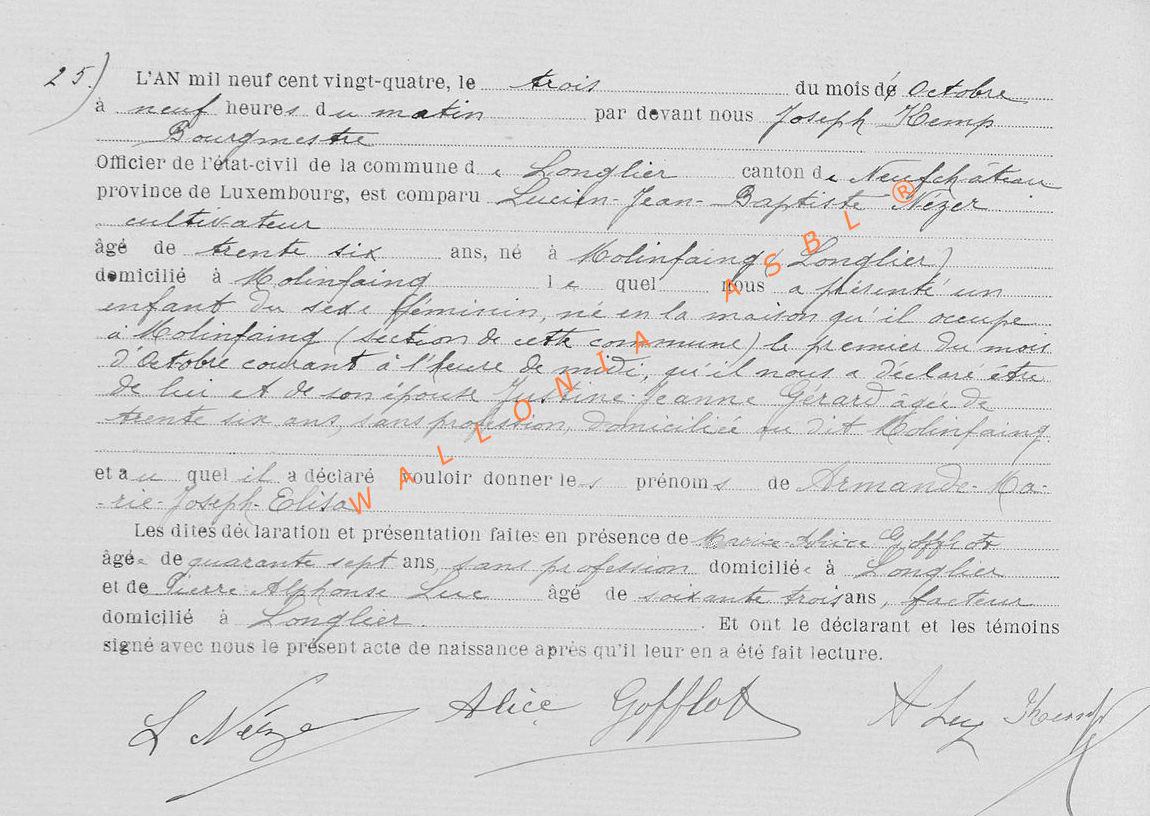 25.) L'AN mil neuf cent vingt-quatre, le trois du mois de Octobre
à neuf heures du matin par devant nous Joseph Kemp
Bourgmestre
Officier de l'état-civil de la commune de Longlier canton de Neufchâteau
province de Luxembourg, est comparu Lucien-Jean-Baptiste Nézer
cultivateur
âgé de trente six ans, né à Molinfaing (Longlier)
domicilié à Molinfaing lequel nous a présenté un
enfant du sexe féminin, né en la maison qu'il occupe
à Molinfaing (section de cette commune) le premier du mois
d'Octobre courant à l'heure de midi, qu'il nous a déclaré être
de lui et de son épouse Justine-Jeanne Gérard âgée de
trente six ans, sans profession, domiciliée au dit Molinfaing
et au quel il a déclaré vouloir donner les prénoms de Armande-Ma-
-rie-Joseph-Elisa
Les dites déclaration et présentation faites en présence de Marie-Alice Gofflot
âgée de quarante sept ans, sans profession domiciliée à Longlier
et de Pierre-Alphonse Luc âgé de soixante trois ans, facteur
domicilié à Longlier. Et ont le déclarant et les témoins
signé avec nous le présent acte de naissance après qu'il leur en a été fait lecture.
L Nézer Alice Gofflot A Luc Kemp
WALLONIA ASBL ®